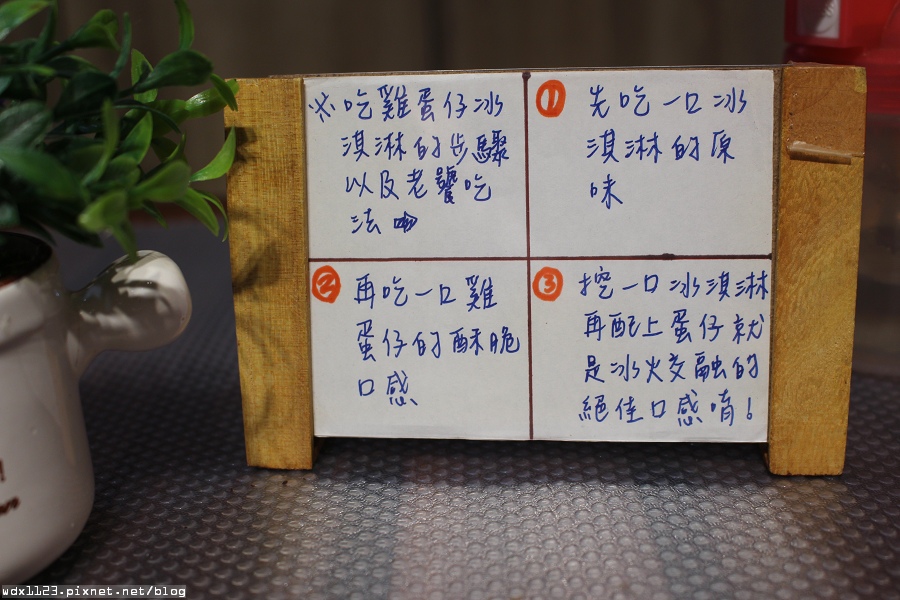 ※吃雞蛋仔冰
淇淋的步驟
以及老饕吃
法
① 先吃一口冰
淇淋的原
味
② 再吃一口雞
蛋仔的酥脆
口感
③ 挖一口冰淇淋
再配上蛋仔就
是冰火交融的
絕佳口感唷!
wdx1123.pixnet.net/blog